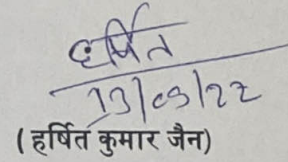 हर्षित
13/09/22
(हर्षित कुमार जैन)